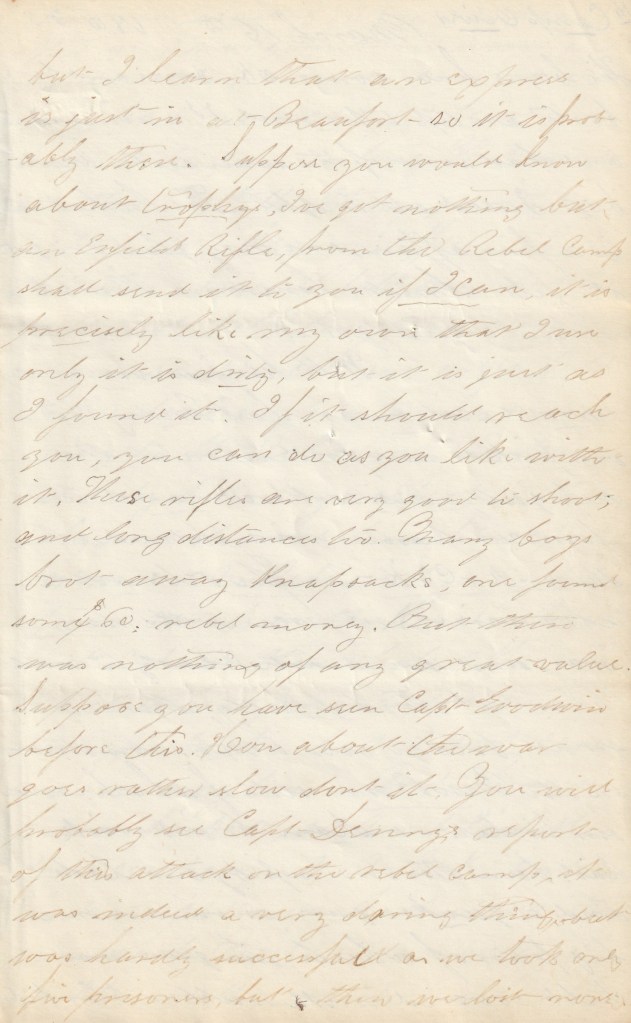 but I learn that an express
is just in at Beaufort so it is prob-
-ably there. Suppose you would know
about trophys, I've got nothing but
an Enfield Rifle, from the Rebel Camp
shall send it to you if I can, it is
precisely like my own that I use
only it is dirty, but it is just as
I found it. If it should reach
you, you can do as you like with
it. These rifles are very good to shoot,
and long distances too. Many boys
brot away Knapsacks, one found
some $60: rebel money. But there
was nothing of any great value.
Suppose you have seen Capt Goodwin
before this. How about the war
goes rather slow dont it. You will
probably see Capt Denny's report
of this attack on the rebel camp, it
was indeed a very daring thing, but
was hardly successful as we took only
five prisoners, but then we lost none